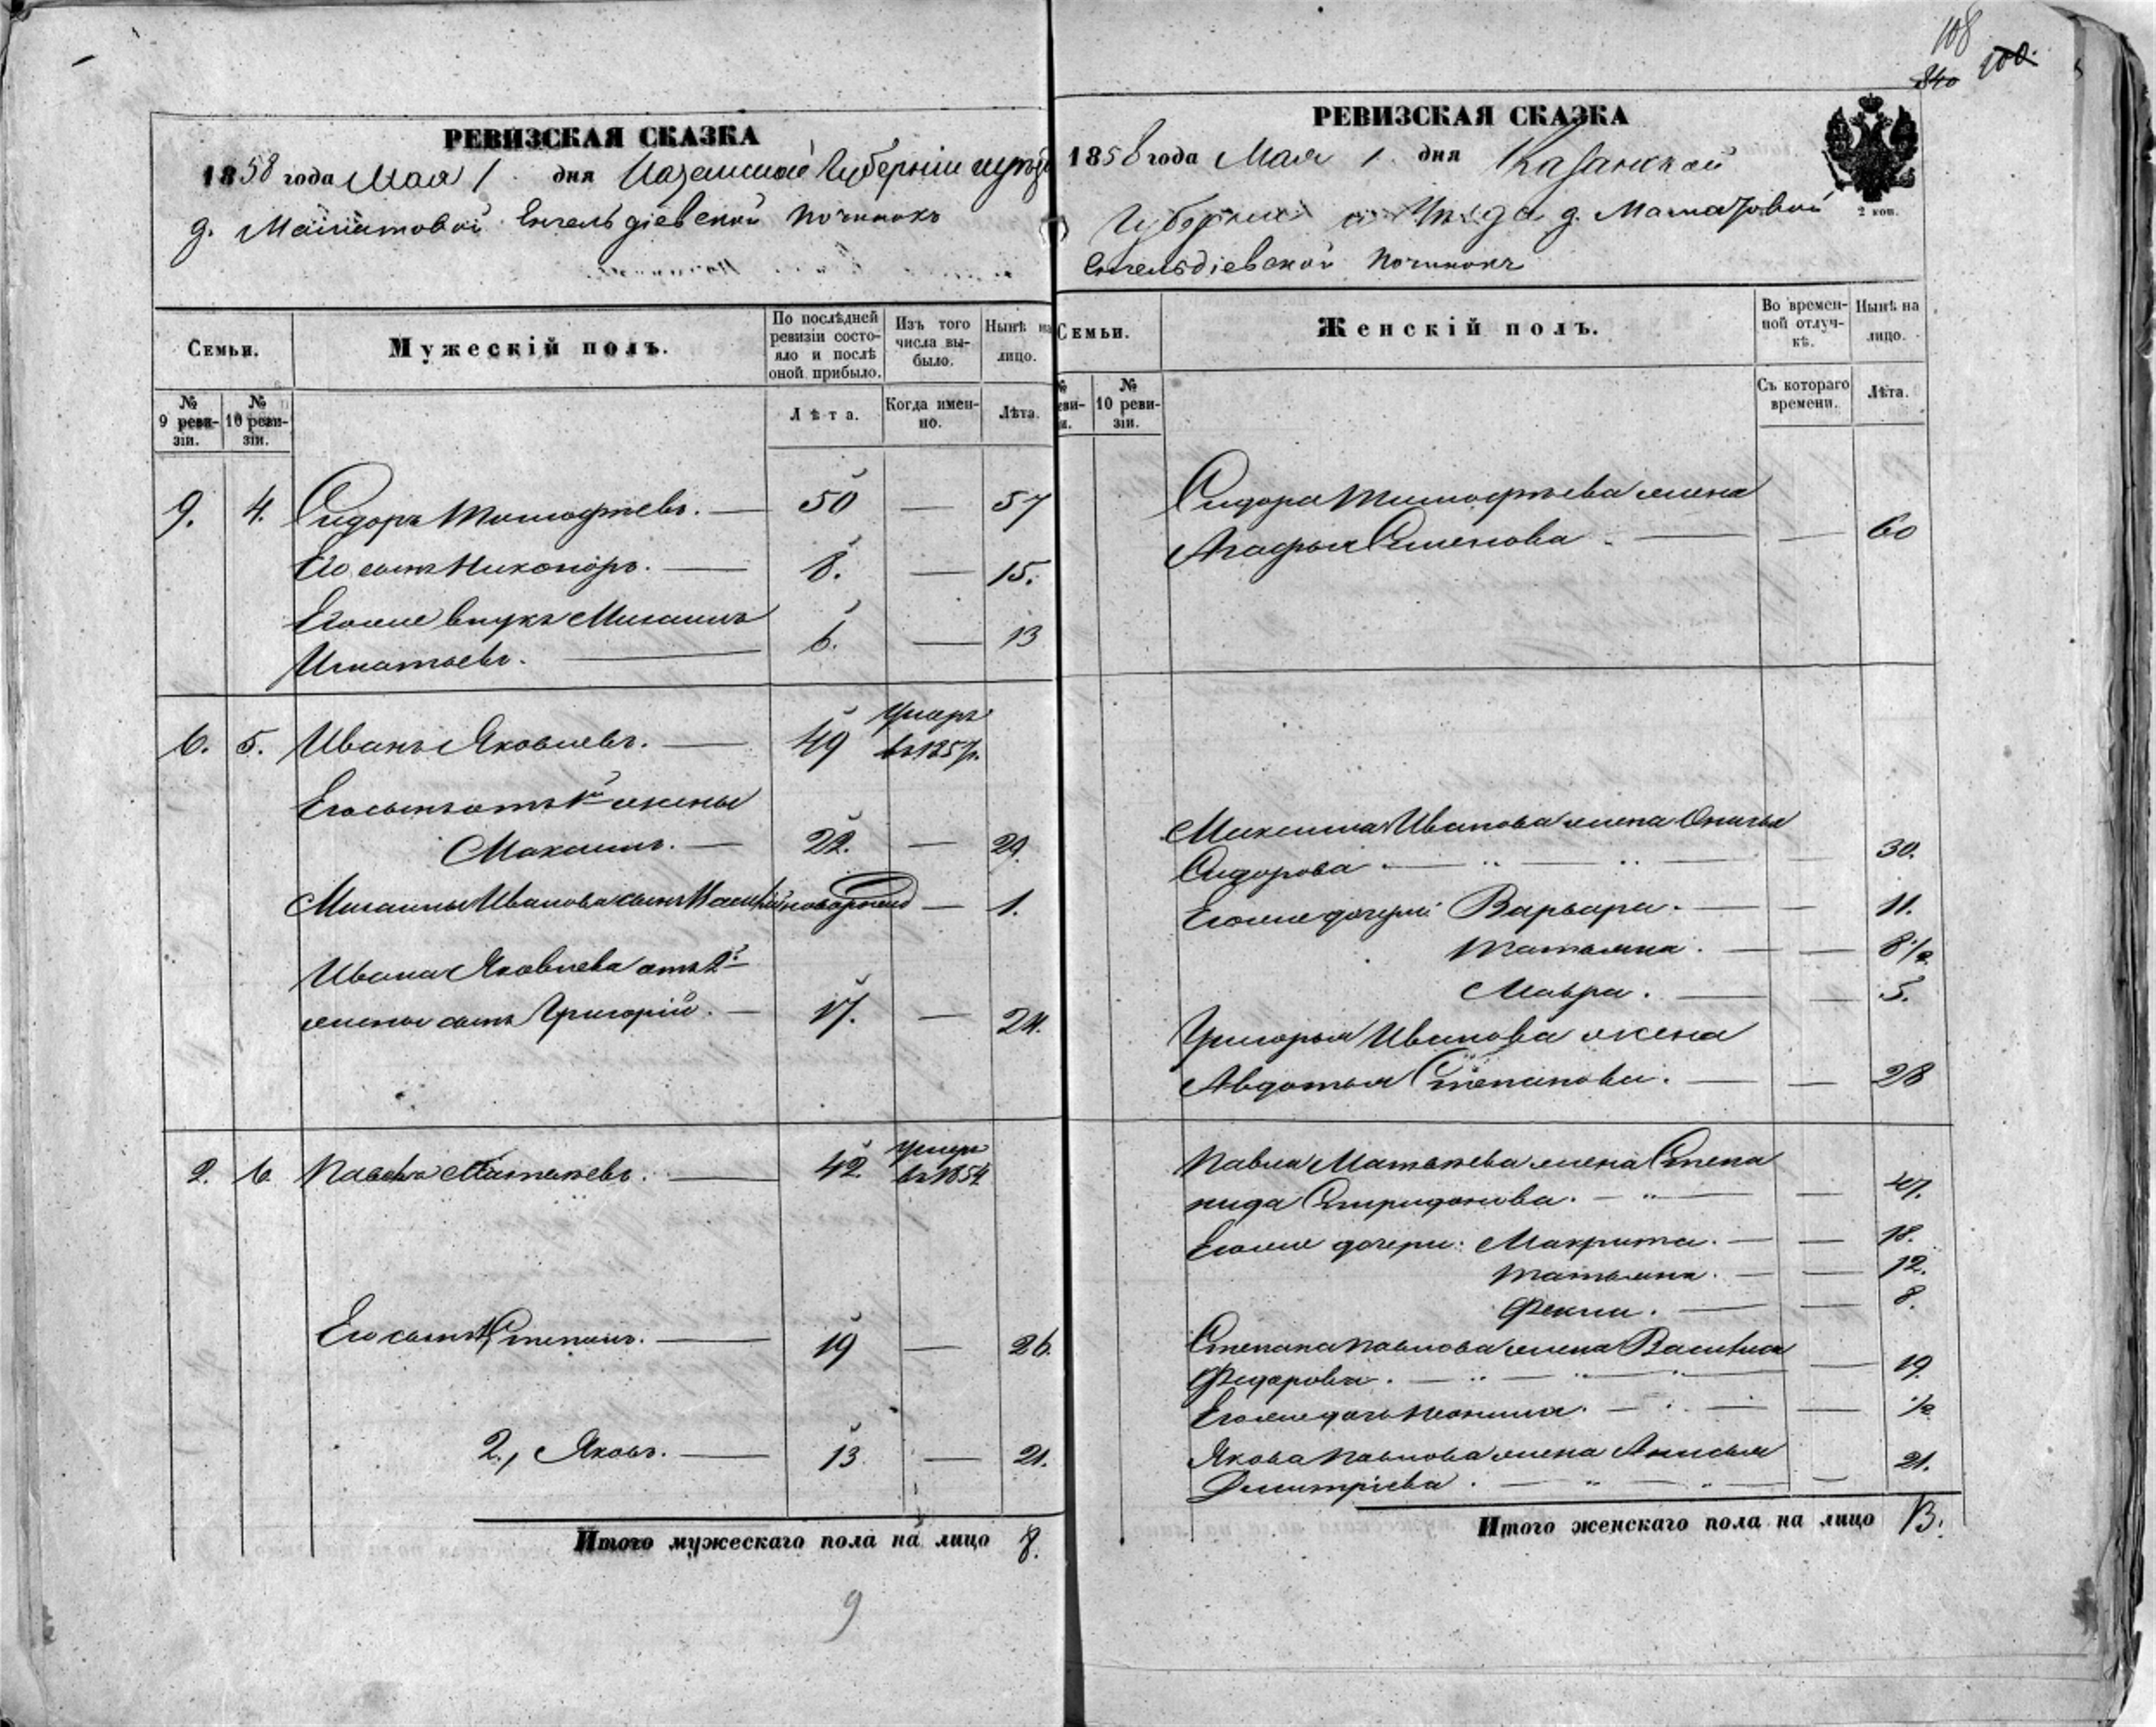 108
840 100.
РЕВИЗСКАЯ СКАЗКА
1858 года Мая 1 дня Казанской Губерніи и уѣзда
д. Починокъ
Семьи.
Мужескій полъ.
По послѣдней ревизіи состояло и послѣ оной прибыло.
Изъ того числа выбыло.
Нынѣ на лицо.
№ 9 ревизіи.
№ 10 ревизіи.
Лѣта.
Когда именно.
Лѣта.
9. 4. Сидоръ Тимофѣевъ. — 50 — 57
Его сынъ Никоноръ. — 8. — 15.
Его же внукъ Михаилъ
Игнатьевъ. — 6. — 13
6. 5. Иванъ Яковлевъ. — 49 Умеръ въ 1857 г.
Его сынъ отъ 1й жены
Максимъ. — 22. — 29.
Максима Иванова сынъ новорожд — 1.
Ивана Яковлева отъ 2й
жены сынъ Григорій. — 17. — 24.
2. 6. Павелъ Матвѣевъ. — 42. Умеръ въ 1854
Его сынъ 1, Степанъ. — 19 — 26.
2, Яковъ. — 13 — 21.
Итого мужескаго пола на лицо 8.
9
РЕВИЗСКАЯ СКАЗКА
1858 года Мая 1. дня Казанской
Губерніи и Уѣзда д.
Починокъ
2 коп.
Семьи.
Женскій полъ.
Во временной отлучкѣ.
Нынѣ на лицо.
№ реви-
и.
№ 10 ревизіи.
Съ котораго времени.
Лѣта.
Сидора Тимофѣева жена
Агафья Семенова. — — 60
Максима Иванова жена
Сидорова. — — 30.
Его же дочери: Варвара. — — 11.
Татьяна. — — 8 1/2.
Мавра. — — 5.
Григорья Иванова жена
Авдотья Степанова. — — 28
Павла Матвѣева жена Степа
нида Спиридонова. — — 47.
Его же дочери: Макрита. — — 18.
Татьяна. — — 12.
Фекла. — — 8.
Степана Павлова жена Василиса
Федорова. — — 19.
Его же дочь Неонила. — — 1/2
Якова Павлова жена Анисья
Дмитріева. — — 21.
Итого женскаго пола на лицо 13.